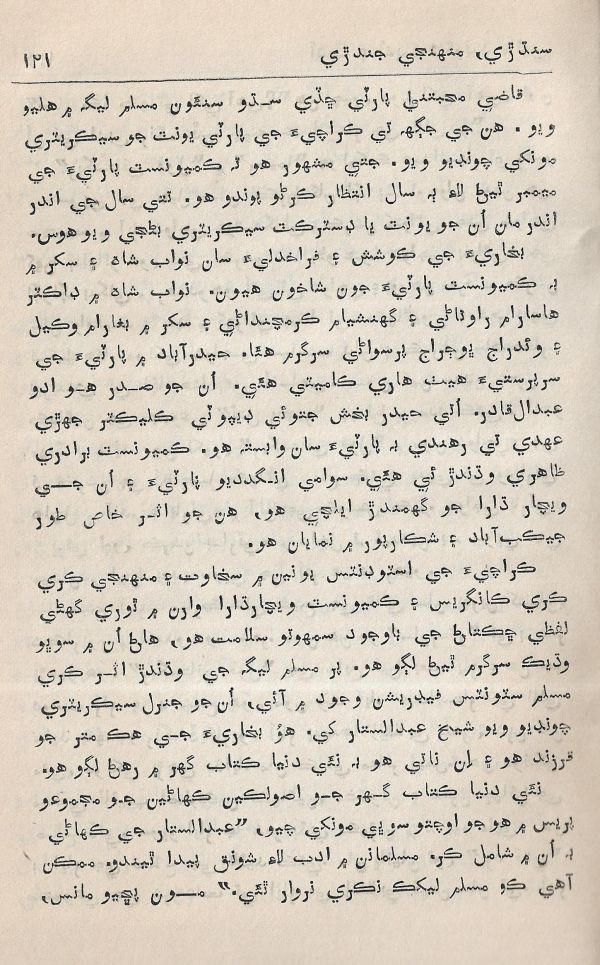 سنڌڙي، منهنجي جندڙي ١٢١
قاضي مجتبيٰ پارٽي ڇڏي سڌو سنئون مسلم ليگ ۾ هليو
ويو. هن جي جڳهہ تي ڪراچيءَ جي پارٽي يونٽ جو سيڪريٽري
مونکي چونڊيو ويو. جتي مشهور هو تہ ڪميونسٽ پارٽيءَ جي
ميمبر ٿيڻ لاءِ ٻہ سال انتظار ڪرڻو پوندو هو. تتي سال جي اندر
اندر مان اُن جو يونٽ يا ڊسٽرڪٽ سيڪريٽري بڻجي ويو هوس.
بخاريءَ جي ڪوشش ۽ فراخدليءَ سان نواب شاهہ ۽ سکر ۾
بہ ڪميونسٽ پارٽيءَ جون شاخون هيون. نواب شاهہ ۾ ڊاڪٽر
هاسارام راوتاڻي ۽ گهنشيام ڪرمچنداڻي ۽ سکر ۾ ٻغارام وڪيل
۽ وئدراج ڀوجراج پرسواڻي سرگرم هئا. حيدرآباد ۾ پارٽيءَ جي
سرپرستيءَ هيٺ هاري ڪاميٽي هئي. اُن جو صدر هو ادو
عبدالقادر. اُتي حيدر بخش جتوئي ڊيپوٽي ڪليڪٽر جهڙي
عهدي تي رهندي بہ پارٽيءَ سان وابستہ هو. ڪميونسٽ برادري
ظاهري وڌندڙ ئي هئي. سوامي انگدديو پارٽيءَ ۽ اُن جي
ويچار ڌارا جو گهمندڙ ايلاچي هو، هن جو اثر خاص طور
جيڪب‌آباد ۽ شڪارپور ۾ نمايان هو.
ڪراچيءَ جي اسٽوڊنٽس يونين ۾ سخاوت ۽ منهنجي ڪري
ڪري ڪانگريس ۽ ڪميونسٽ ويچارڌارا وارن ۾ ٿوري گهڻي
لفظي ڇڪتاڻ جي باوجود سمجهوتو سلامت هو، هاڻ اُن ۾ سوڀو
وڌيڪ سرگرم ٿيڻ لڳو هو. پر مسلم ليگ جي وڌندڙ اثر ڪري
مسلم سٽوڊنٽس فيڊريشن وجود ۾ آئي، اُن جو جنرل سيڪريٽري
چونڊيو ويو شيخ عبدالستار کي. هوُ بخاريءَ جي هڪ متر جو
فرزند هو ۽ اِن ناتي هو بہ نئي دنيا ڪتاب گهر ۾ رهڻ لڳو هو.
نئي دنيا ڪتاب گهر جو اصولڪين ڪهاڻين جو مجموعو
پريس ۾ هو جو اوچتو سوڀي مونکي چيو، ”عبدالستار جي ڪهاڻي
بہ اُن ۾ شامل ڪر. مسلمانن ۾ ادب لاءِ شونق پيدا ٿيندو. ممڪن
آهي ڪو مسلم ليکڪ نڪري نروار ٿئي.“ مون پڇيو مانس،